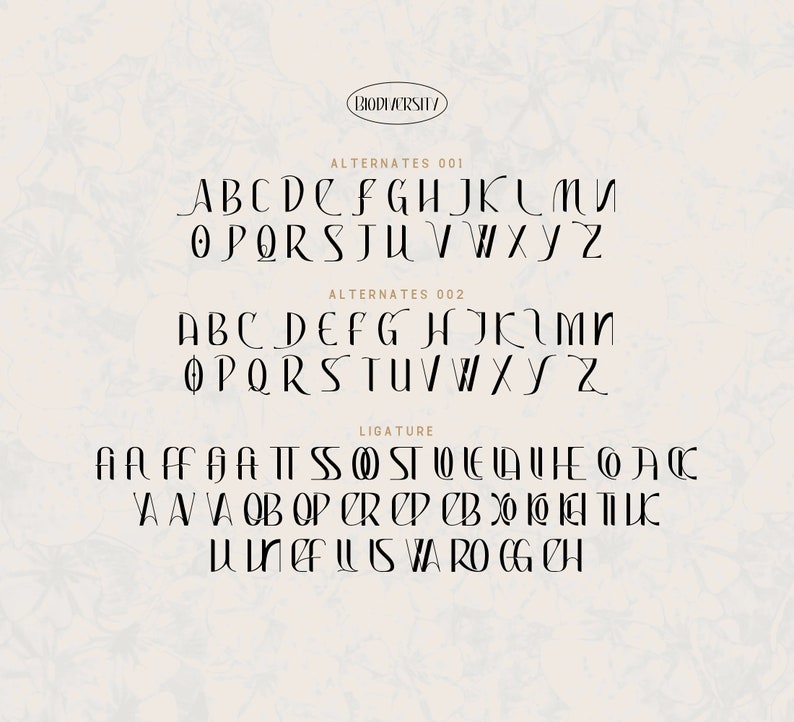 BIODIVERSITY
ALTERNATES 001
A B C D E F G H J K L M N
O P Q R S T U V W X Y Z
ALTERNATES 002
A B C D E F G H J K L M N
O P Q R S T U V W X Y Z
LIGATURE
FI FL FF TT SS OO ST LO LE LA HE CO CK
AV VA OB OP CR CP CB XO KO TI LK
LN LL IS WA RO GG CH